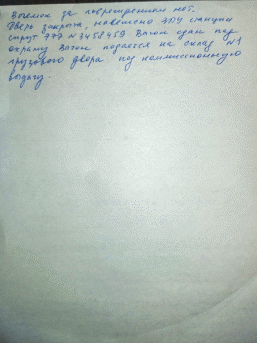 Выемок за повреждением нет.
Дверь закрыта, навешено ЗПУ станции
спрут 777 N 3458459 Вагон сдан под
охрану Вагон подается на склад №1
грузового двора под коммиссионную
выдачу.